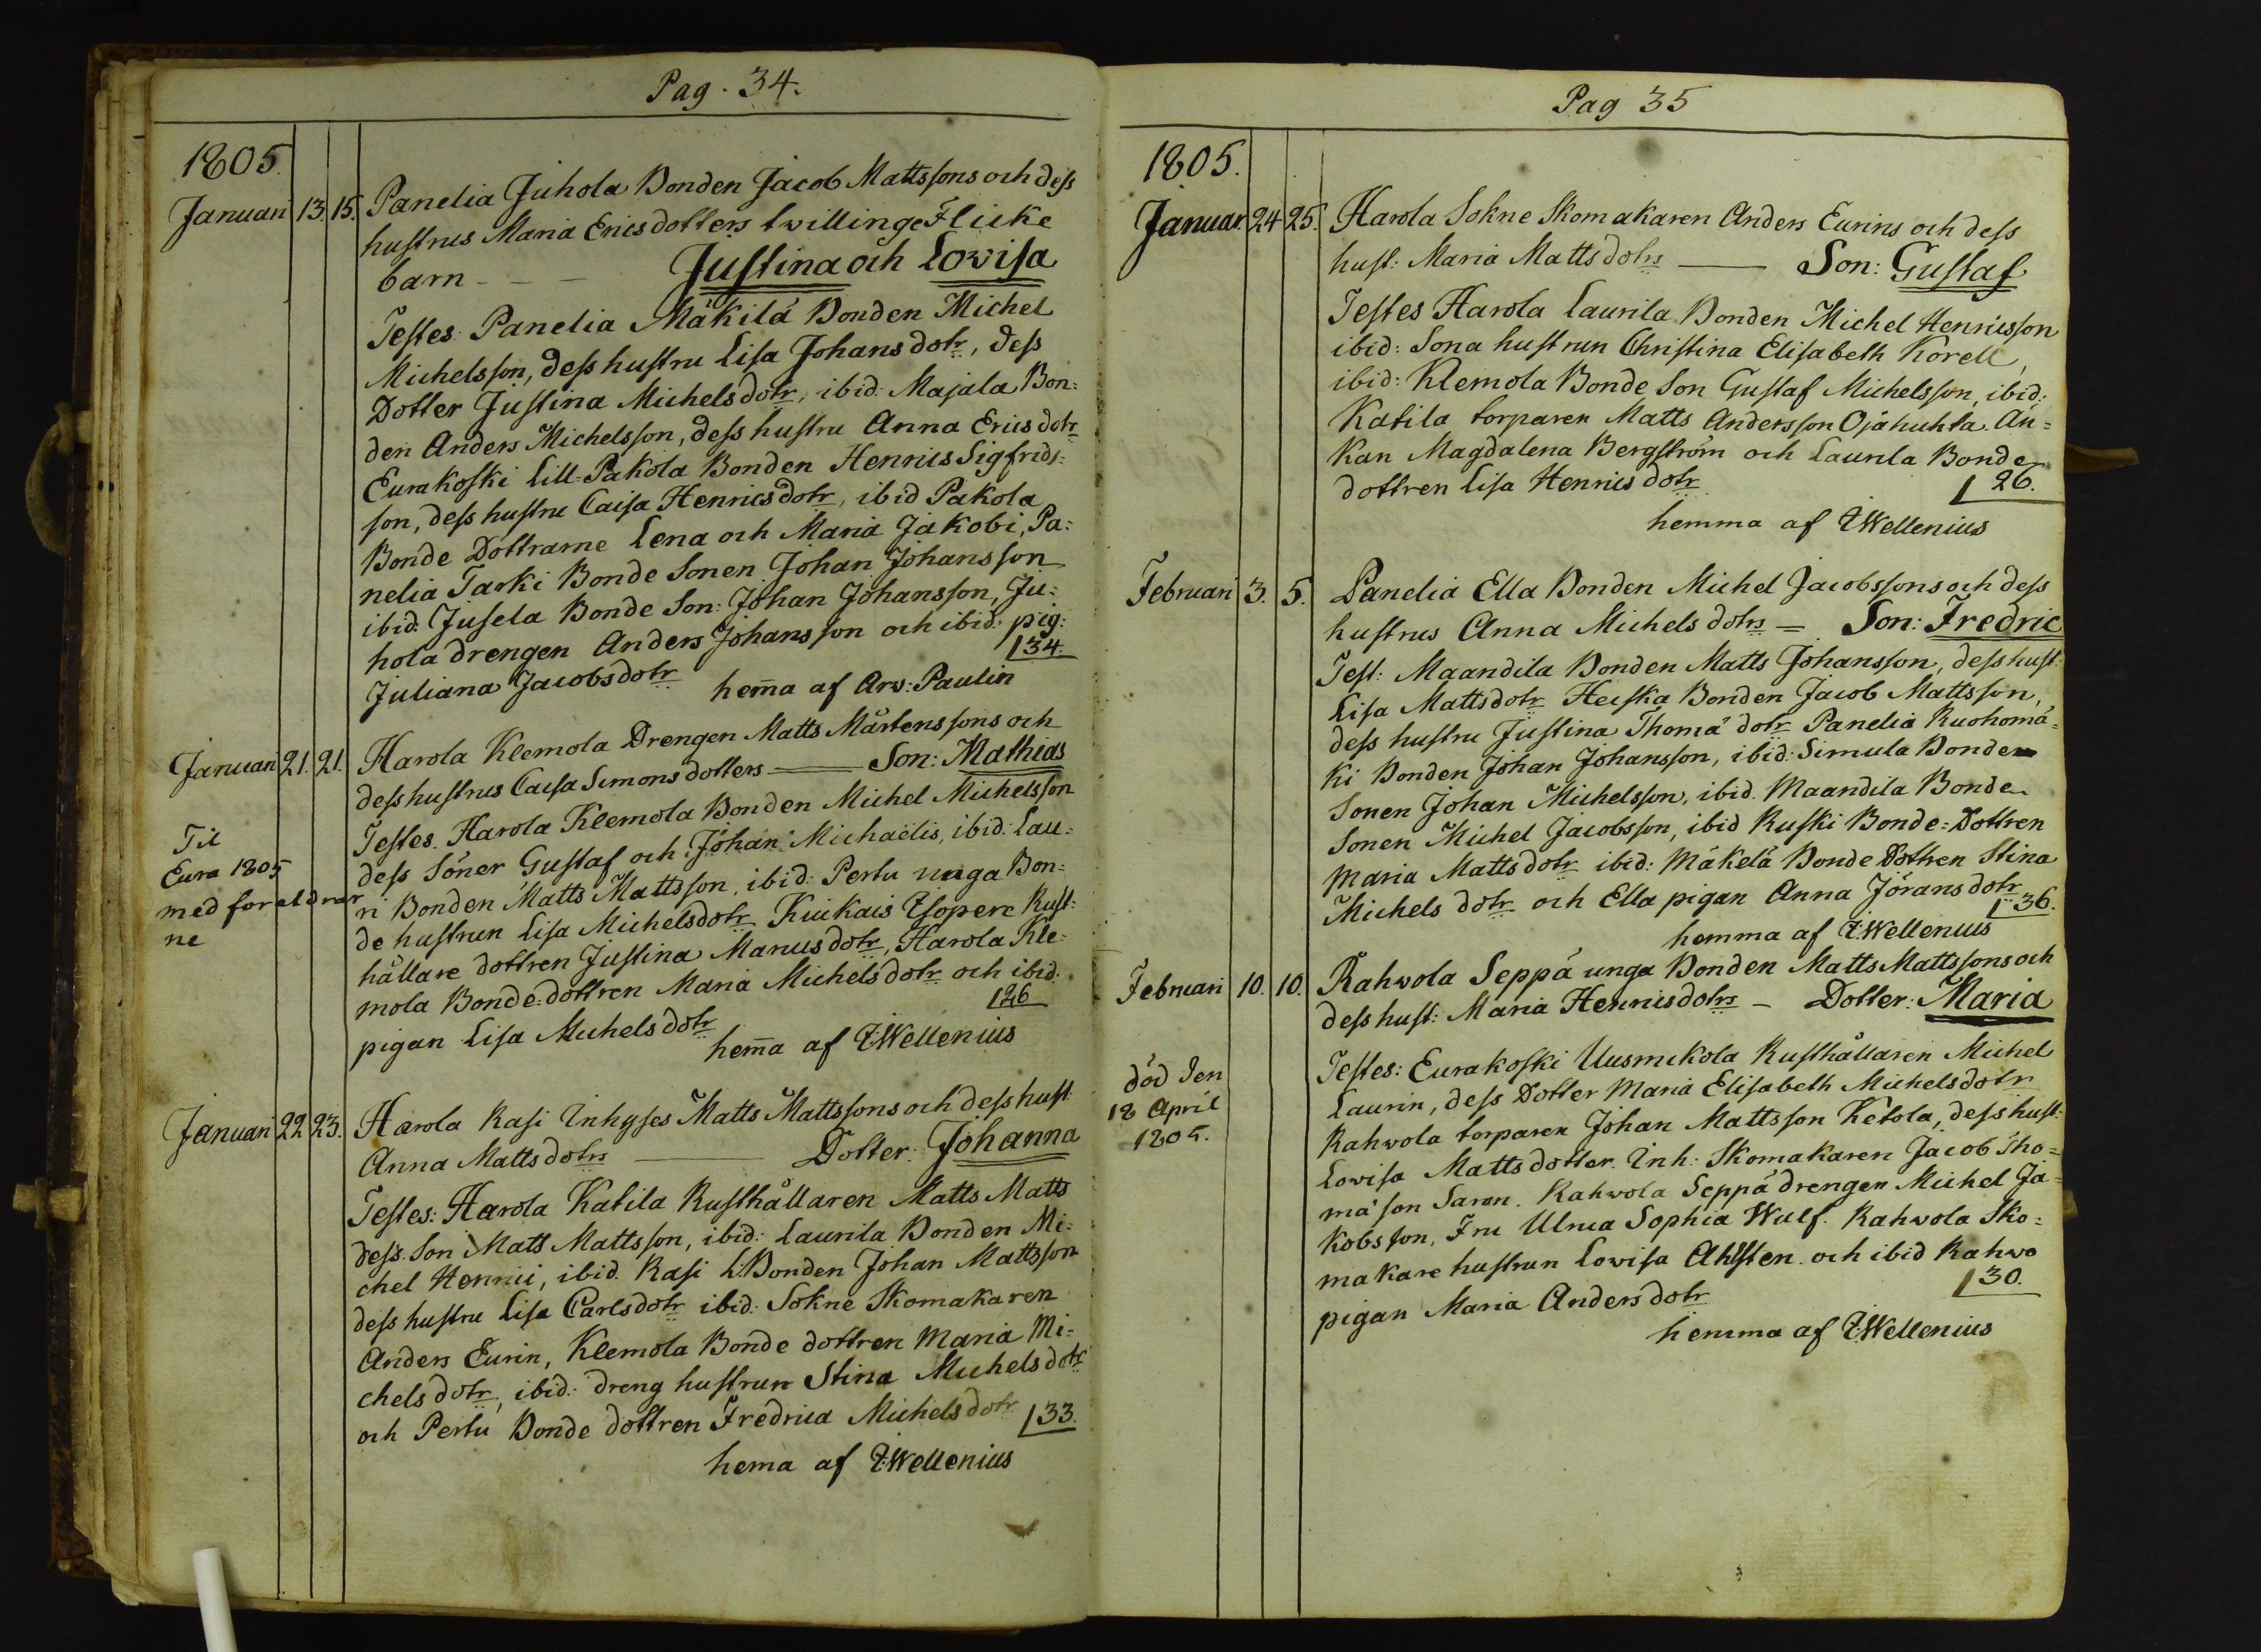 Pag. 34.
1805.
Januari 13. 15. Panelia Juhola Bonden Jacob Mattssons och dess
hustrus Maria Ericsdotters twillinge Flicke
barn - - Justina och Lovisa
Testes. Panelia Mäkilä Bonden Michel
Michelsson, dess hustru Lisa Johansdotr, dess
Dotter Justina Michelsdotr, ibid: Majala Bon=
den Anders Michelsson, dess hustru Anna Ericsdotr
Eurakoski Lill=Pakola Bonden Henrics Sigfrids=
son, dess hustru Caisa Henricsdotr, ibid Pakola
Bonde Dottrarne Lena och Maria Jakobi, Pa=
nelia Tarki Bonde Sonen Johan Johansson
ibid: Jusela Bonde Son: Johan Johansson, Ju=
hola drengen Anders Johansson och ibid: pig:
Juliana Jacobsdotr 34.
hem̄a af Arv: Paulin
Januari 21. 21. Harola Klemola Drengen Matts Mårtenssons och
dess hustrus Caisa Simonsdotters — Son: Mathias
Testes. Harola Klemola Bonden Michel Michelsson
Til
Eura 1805
med foraldrar
ne
dess Söner Gustaf och Johan Michaëlis, ibid: Lau=
ri Bonden Matts Mattsson, ibid: Pertu unga Bon=
de hustrun Lisa Michelsdotr Kiukais Isopere Rust=
hållare dottren Justina Manusdotr, Harola Kle=
mola Bonde=dottren Maria Michelsdotr och ibid:
pigan Lisa Michelsdotr 26
hem̄a af I:Wellenius
Januari 22 23. Harola Rasi Inhyses Matts Mattssons och dess hust:
Anna Mattsdotrs — Dotter: Johanna
Testes: Harola Katila Rusthållaren Matts Matts
dess Son Matts Mattsson, ibid: Laurila Bonden Mi=
chel Henrici, ibid. Rasi Bonden Johan Mattsson
dess hustru Lisa Carlsdotr ibid: Sokne Skomakaren
Anders Eurin, Klemola Bonde dottren Maria Mi=
chelsdotr, ibid: dreng hustrun Stina Michelsdotr
och Pertu Bonde dottren Fredrica Michelsdotr 33.
hema af I:Wellenius
Pag 35
1805.
Januar. 24 25. Harola Sokne Skomakaren Anders Eurins och dess
hust: Maria Mattsdotrs — Son: Gustaf
Testes Harola Laurila Bonden Michel Henricsson
ibid: Sona hustrun Christina Elisabeth Korell,
ibid: Klemola Bonde Son Gustaf Michelsson, ibid:
Katila torparen Matts Andersson Ojahuhta. Än=
kan Magdalena Bergström och Laurila Bonde
dottren Lisa Henricsdotr 26.
hemma af I:Wellenius
Februari 3. 5. Panelia Ella Bonden Michel Jacobssons och dess
hustrus Anna Michelsdotrs = Son: Fredric
Test: Maandila Bonden Matts Johansson, dess hust:
Lisa Mattsdotr Heiska Bonden Jacob Mattsson,
dess hustru Justina Thomä dotr Panelia Ruohomä=
ki Bonden Johan Johansson, ibid: Simula Bonde
Sonen Johan Michelsson, ibid. Maandila Bonde
Sonen Michel Jacobsson, ibid Ruski Bonde=Dottren
Maria Mattsdotr ibid: Mäkelä Bonde Dottren Stina
Michels dotr och Ella pigan Anna Jöransdotr 36.
hemma af I:Wellenius
Februari 10. 10. Kahvola Seppä unga Bonden Matts Mattssons och
dess hust: Maria Henricsdotrs - Dotter: Maria
död den
18 April
1805.
Testes: Eurakoski Uusmikola Rusthållaren Michel
Laurin, dess Dotter Maria Elisabeth Michelsdotr
Kahvola torparen Johan Mattsson Ketola, dess hust:
Lovisa Mattsdotter. Inh: Skomakaren Jacob Tho=
mä'son Saren. Kahvola Seppä drengen Michel Ja=
kobsson, Fru Ulrica Sophia Wulf. Kahvola Sko=
makare hustrun Lovisa Ahlsten. och ibid Kahvo
pigan Maria Andersdotr 30.
hemma af I:Wellenius